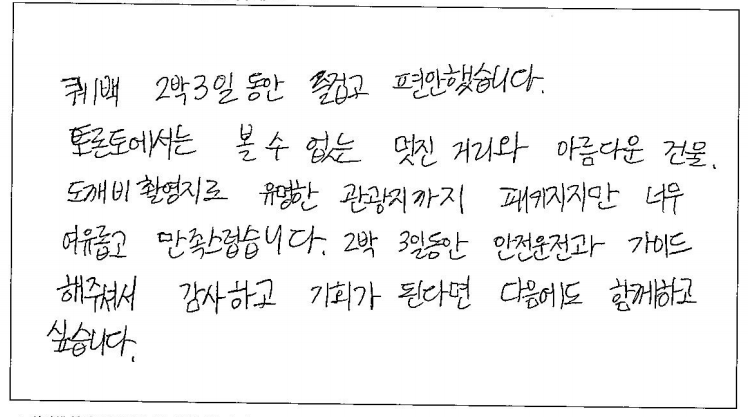 퀘백 2박3일 동안 즐겁고 편안했습니다.
토론토에서는 볼 수 없는 멋진 거리와 아름다운 건물,
도깨비 촬영지로 유명한 관광지까지 패키지지만 너무
여유롭고 만족스럽습니다. 2박 3일동안 안전운전과 가이드
해주셔서 감사하고 기회가 된다면 다음에도 함께하고
싶습니다.